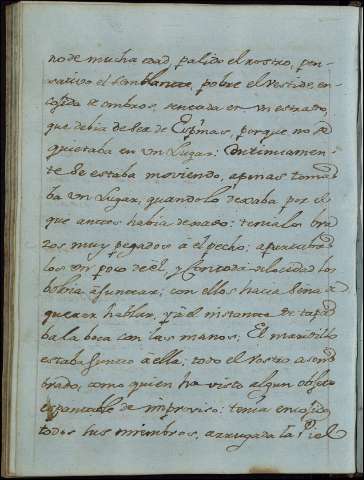 no de mucha edad, palido el rostro, pen-
sativo el semblante, pobre el vestido, en-
cogido de ombros, sentada en un estrado,
que debia de ser de Espinas, porque no se
quietaba en un lugar: Continuamen-
te se estaba moviendo, apenas toma-
ba un lugar, quando lo dexaba por el
que antes habia dexado: tenia los bra-
zos muy pegados á el pecho; apartaba
los un poco de èl, y con toda velocidad los
bolvia á juntar; con ellos hacia seña de
querer hablar, y à el instante se tapa-
ba la boca con las manos; El maridillo
estaba junto á ella; todo el rostro asom-
brado, como quien ha visto algun objeto
espantable de improviso: tenia encogidos
todos sus miembros, arrugada la Piel